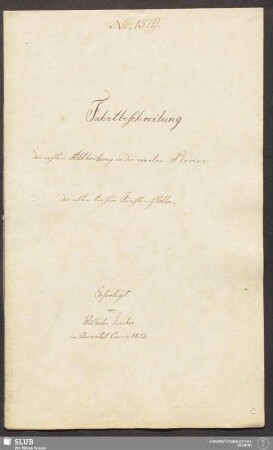 No: 1529.
Fahrtbeschreibung
der ersten Abtheilung in der vierten Revier
des alten tiefen Fürsten Stolln.
Gefertigt
von
Wilhelm
im Quartal Crucis 1843.
SLUB
Wir führen Wissen.